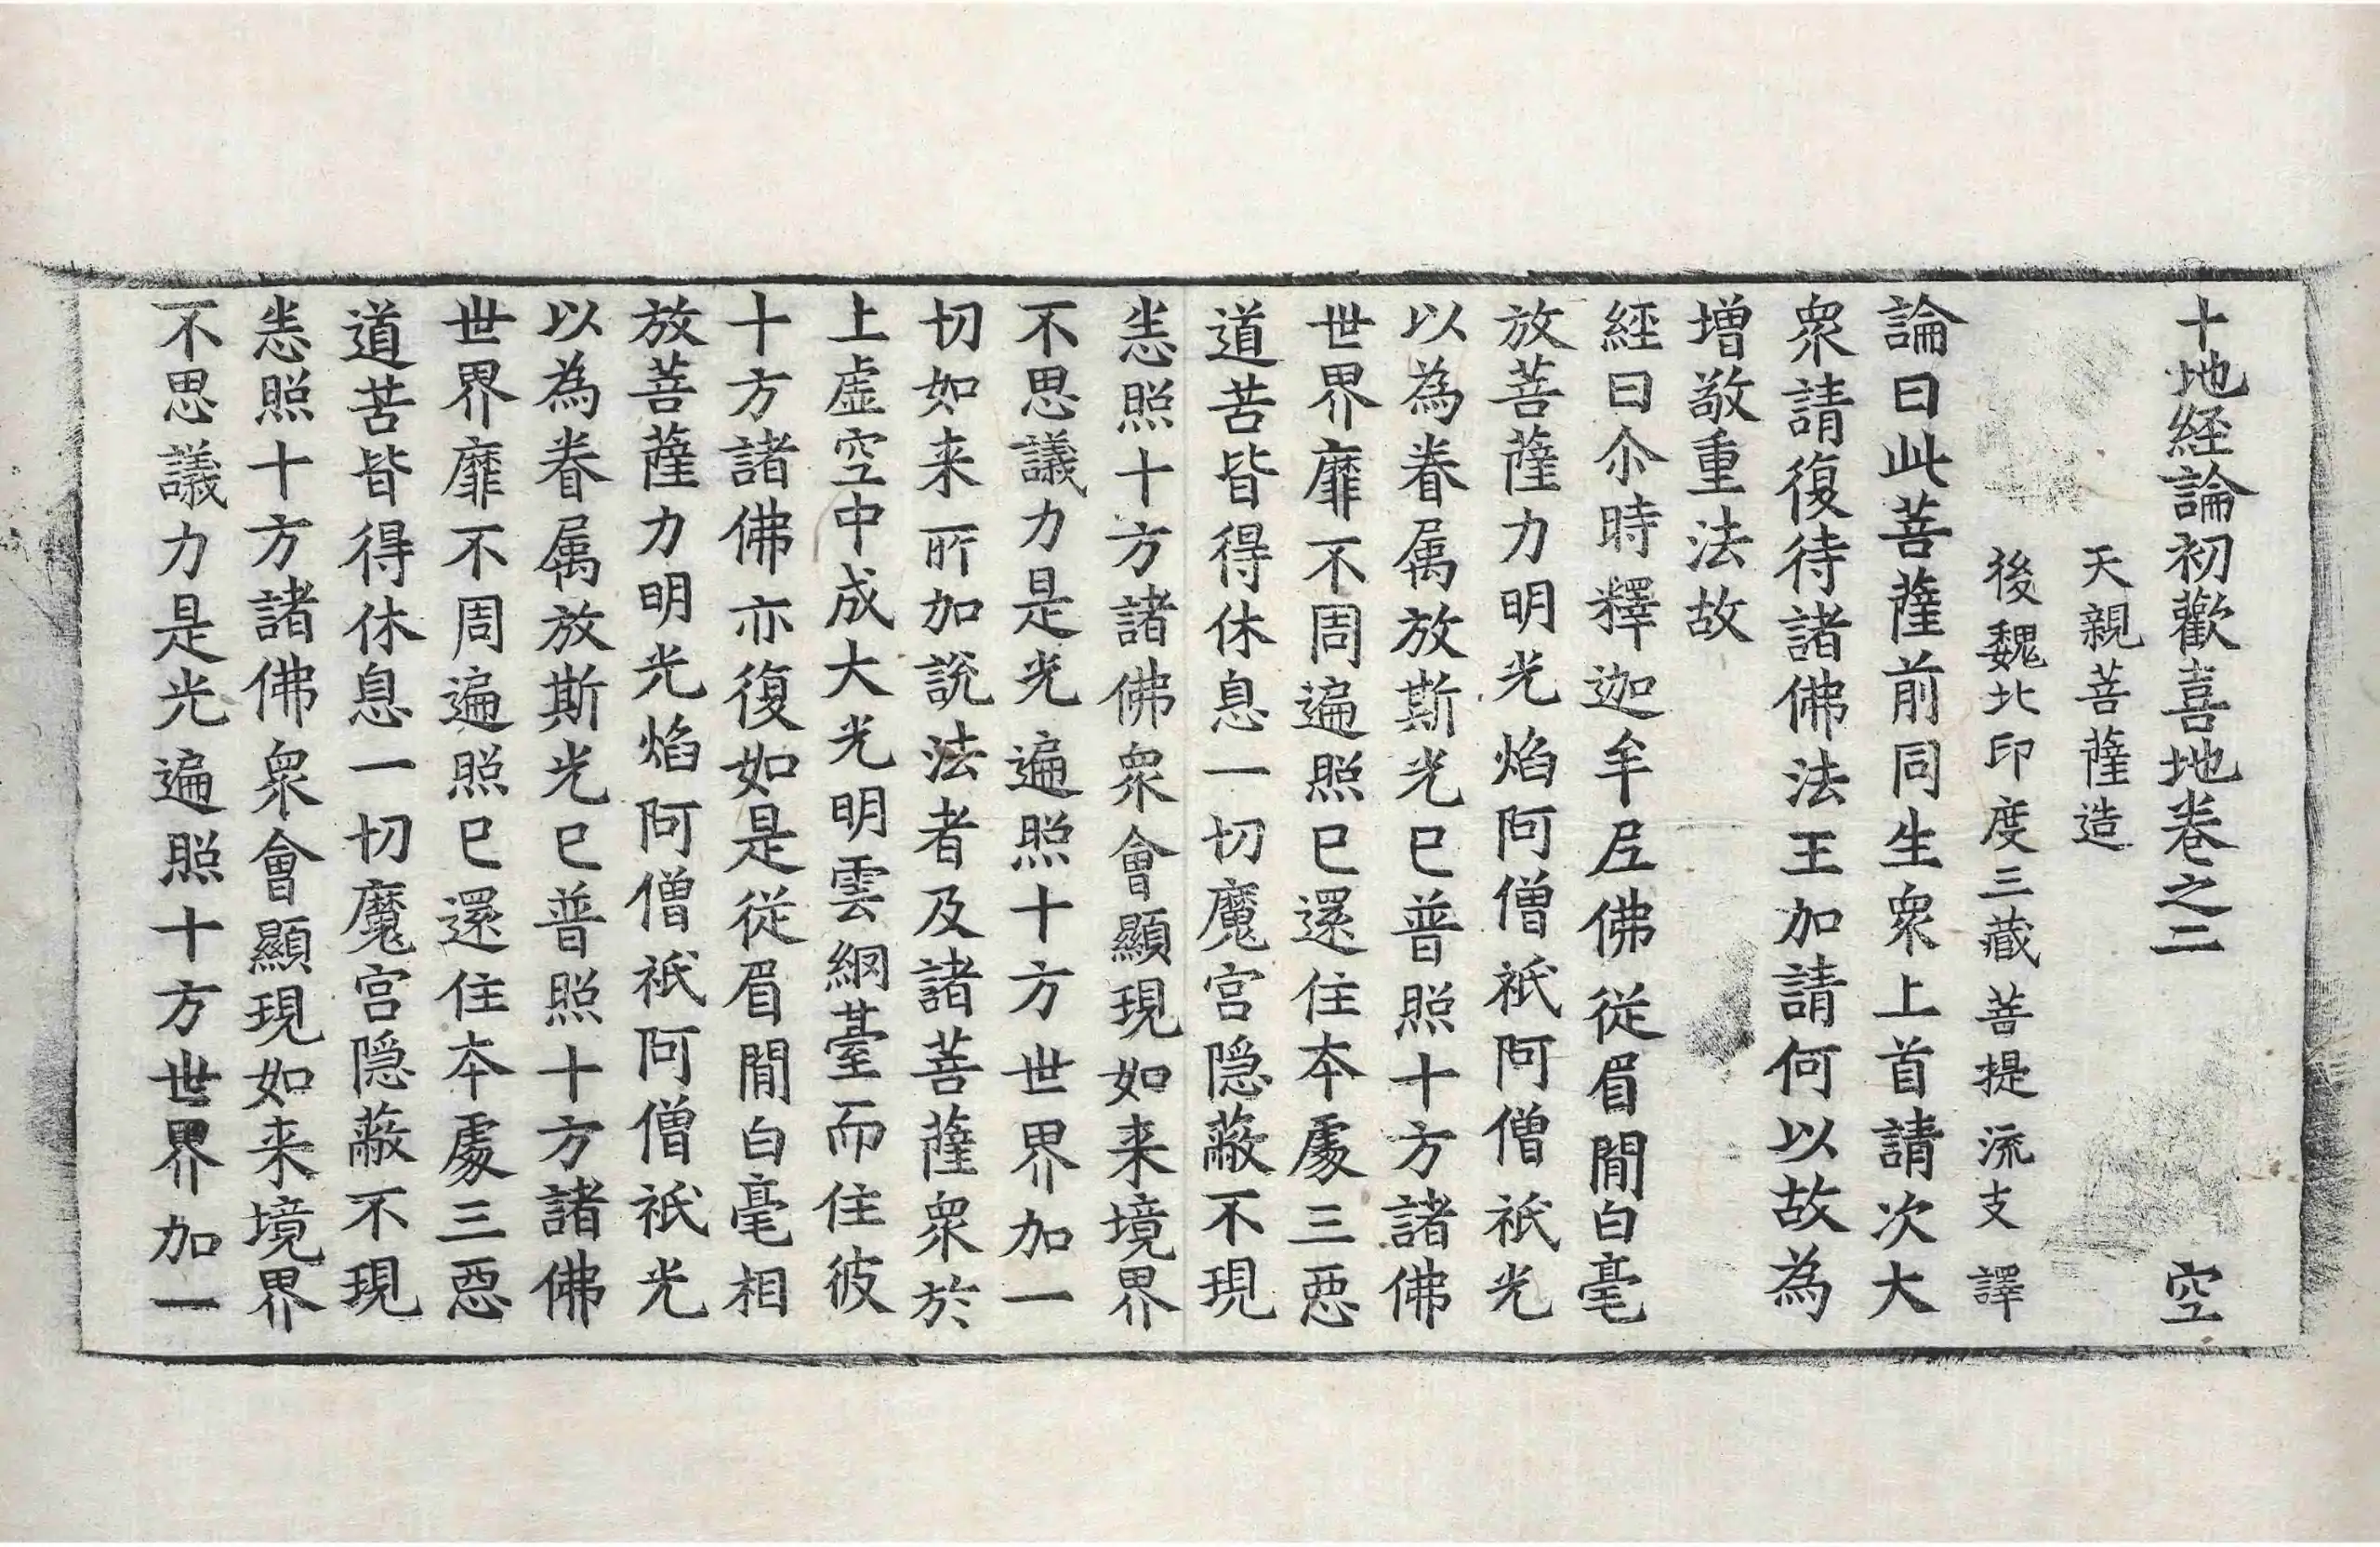 十地経論初歡喜地卷之二 空
天親菩薩造
後魏北印度三藏菩提流支譯
論曰此菩薩前同生衆上首請次大
衆請復待諸佛法王加請何以故為
増敬重法故
經曰尒時釋迦牟𡰱佛從眉間白毫
放菩薩力明光焰阿僧祇阿僧祇光
以為眷属放斯光已普照十方諸佛
世界靡不周遍照已還住本處三惡
道苦皆得休息一切魔宫隠蔽不現
悉照十方諸佛衆會顯現如来境界
不思議力是光遍照十方世界加一
切如来所加說法者及諸菩薩衆於
上虛空中成大光明雲網臺而住彼
十方諸佛亦復如是從眉間白毫相
放菩薩力明光焰阿僧祇阿僧祇光
以為眷属放斯光已普照十方諸佛
世界靡不周遍照已還住本處三惡
道苦皆得休息一切魔宫隠蔽不現
悉照十方諸佛衆會顯現如来境界
不思議力是光遍照十方世界加一